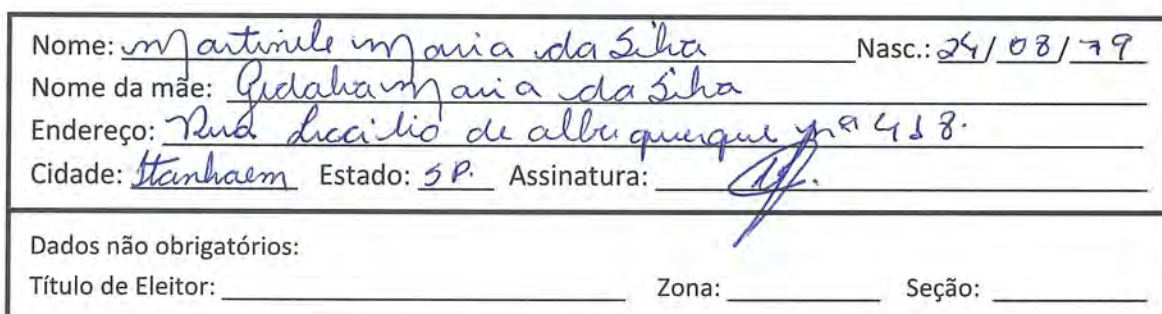 Nome: Martinile Maria da Silva Nasc.: 24/08/79
Nome da mãe: Maria da Silva
Endereço: Rua Lucilio de albuquerque nº 418.
Cidade: Itanhaem Estado: SP. Assinatura:
Dados não obrigatórios:
Título de Eleitor: Zona: Seção: